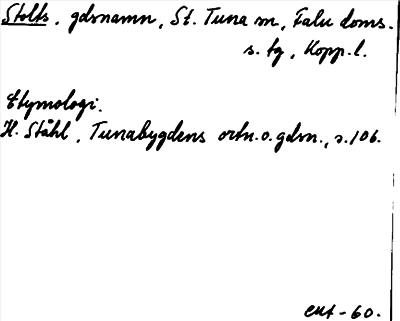 Stolts, gdsnamn, St. Tuna sn, Falu doms.
s. tg, Kopp. l.
Etymologi.
H. Ståhl, Tunabygdens ortn. o. gdsn., s. 106.
ewt - 60.